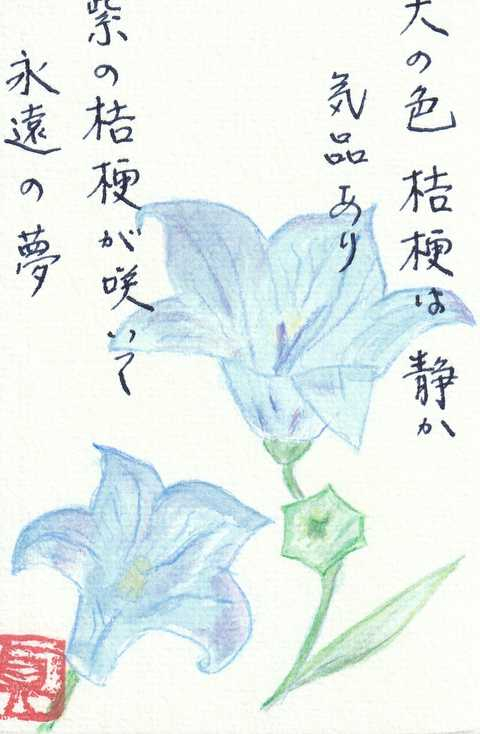 の色 桔梗は 静か
気品あり
紫の桔梗が咲いて
永遠の夢